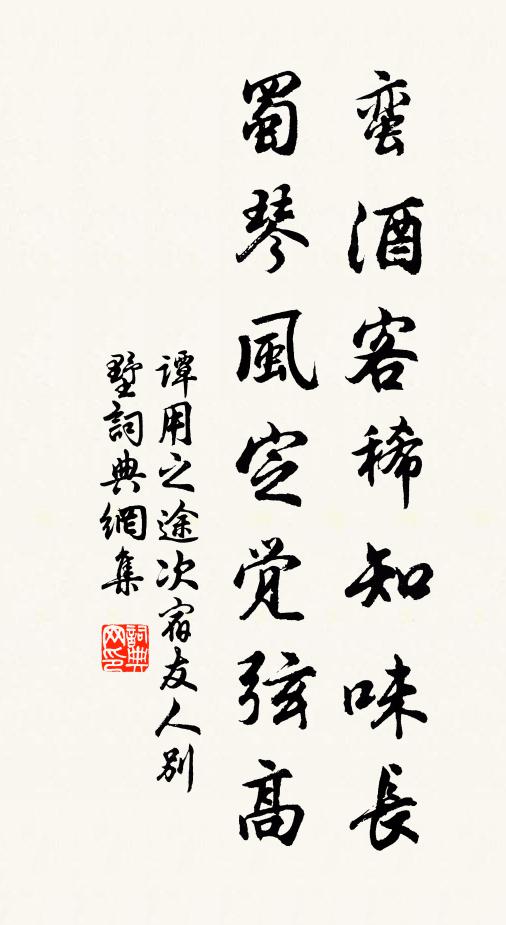 蛮酒客稀知味長
蜀琴風定觉弦高
譚用之途次宿友人别
墅詞典網集
詞典网印